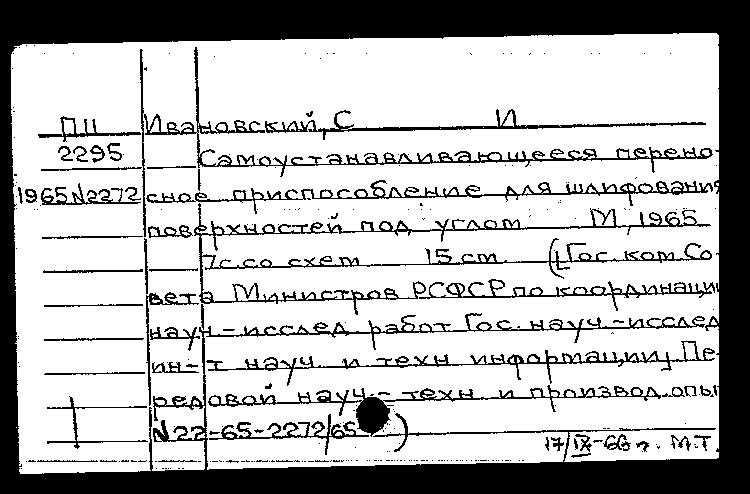 П11 Ивановский, С И
2295 Самоустанавливающееся перено-
1965N2272 сное приспособление для шлифования
поверхностей под углом М, 1965
7с.со схем 15 см. (Гос. ком Со-
вета Министров РСФСР по координации
науч-исслед работ Гос. науч-исслед
ин-т науч. и техн информации] Пе-
редовой науч-техн и производ.опы
N22-65-2272/65 )
17/IX-66 г. М.Т.